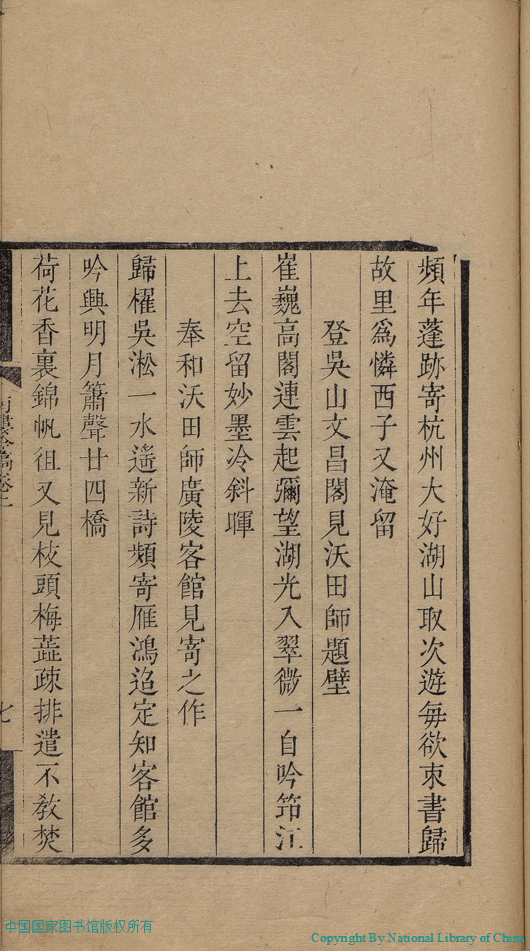 頻年蓬跡寄杭州大好湖山取次遊每欲束書歸
故里爲憐西子又淹留
登吳山文昌閣見沃田師題壁
崔巍高閣連雲起彌望湖光入翠微一自吟筇江
上去空留妙墨冷斜暉
奉和沃田師廣陵客館見寄之作
歸櫂吳淞一水遙新詩頻寄雁鴻迢定知客館多
吟興明月簫聲廿四橋
荷花香裏錦帆徂又見枝頭梅蕋疎排遣不教焚
七
中国国家图书馆版权所有
Copyright By National Library of China